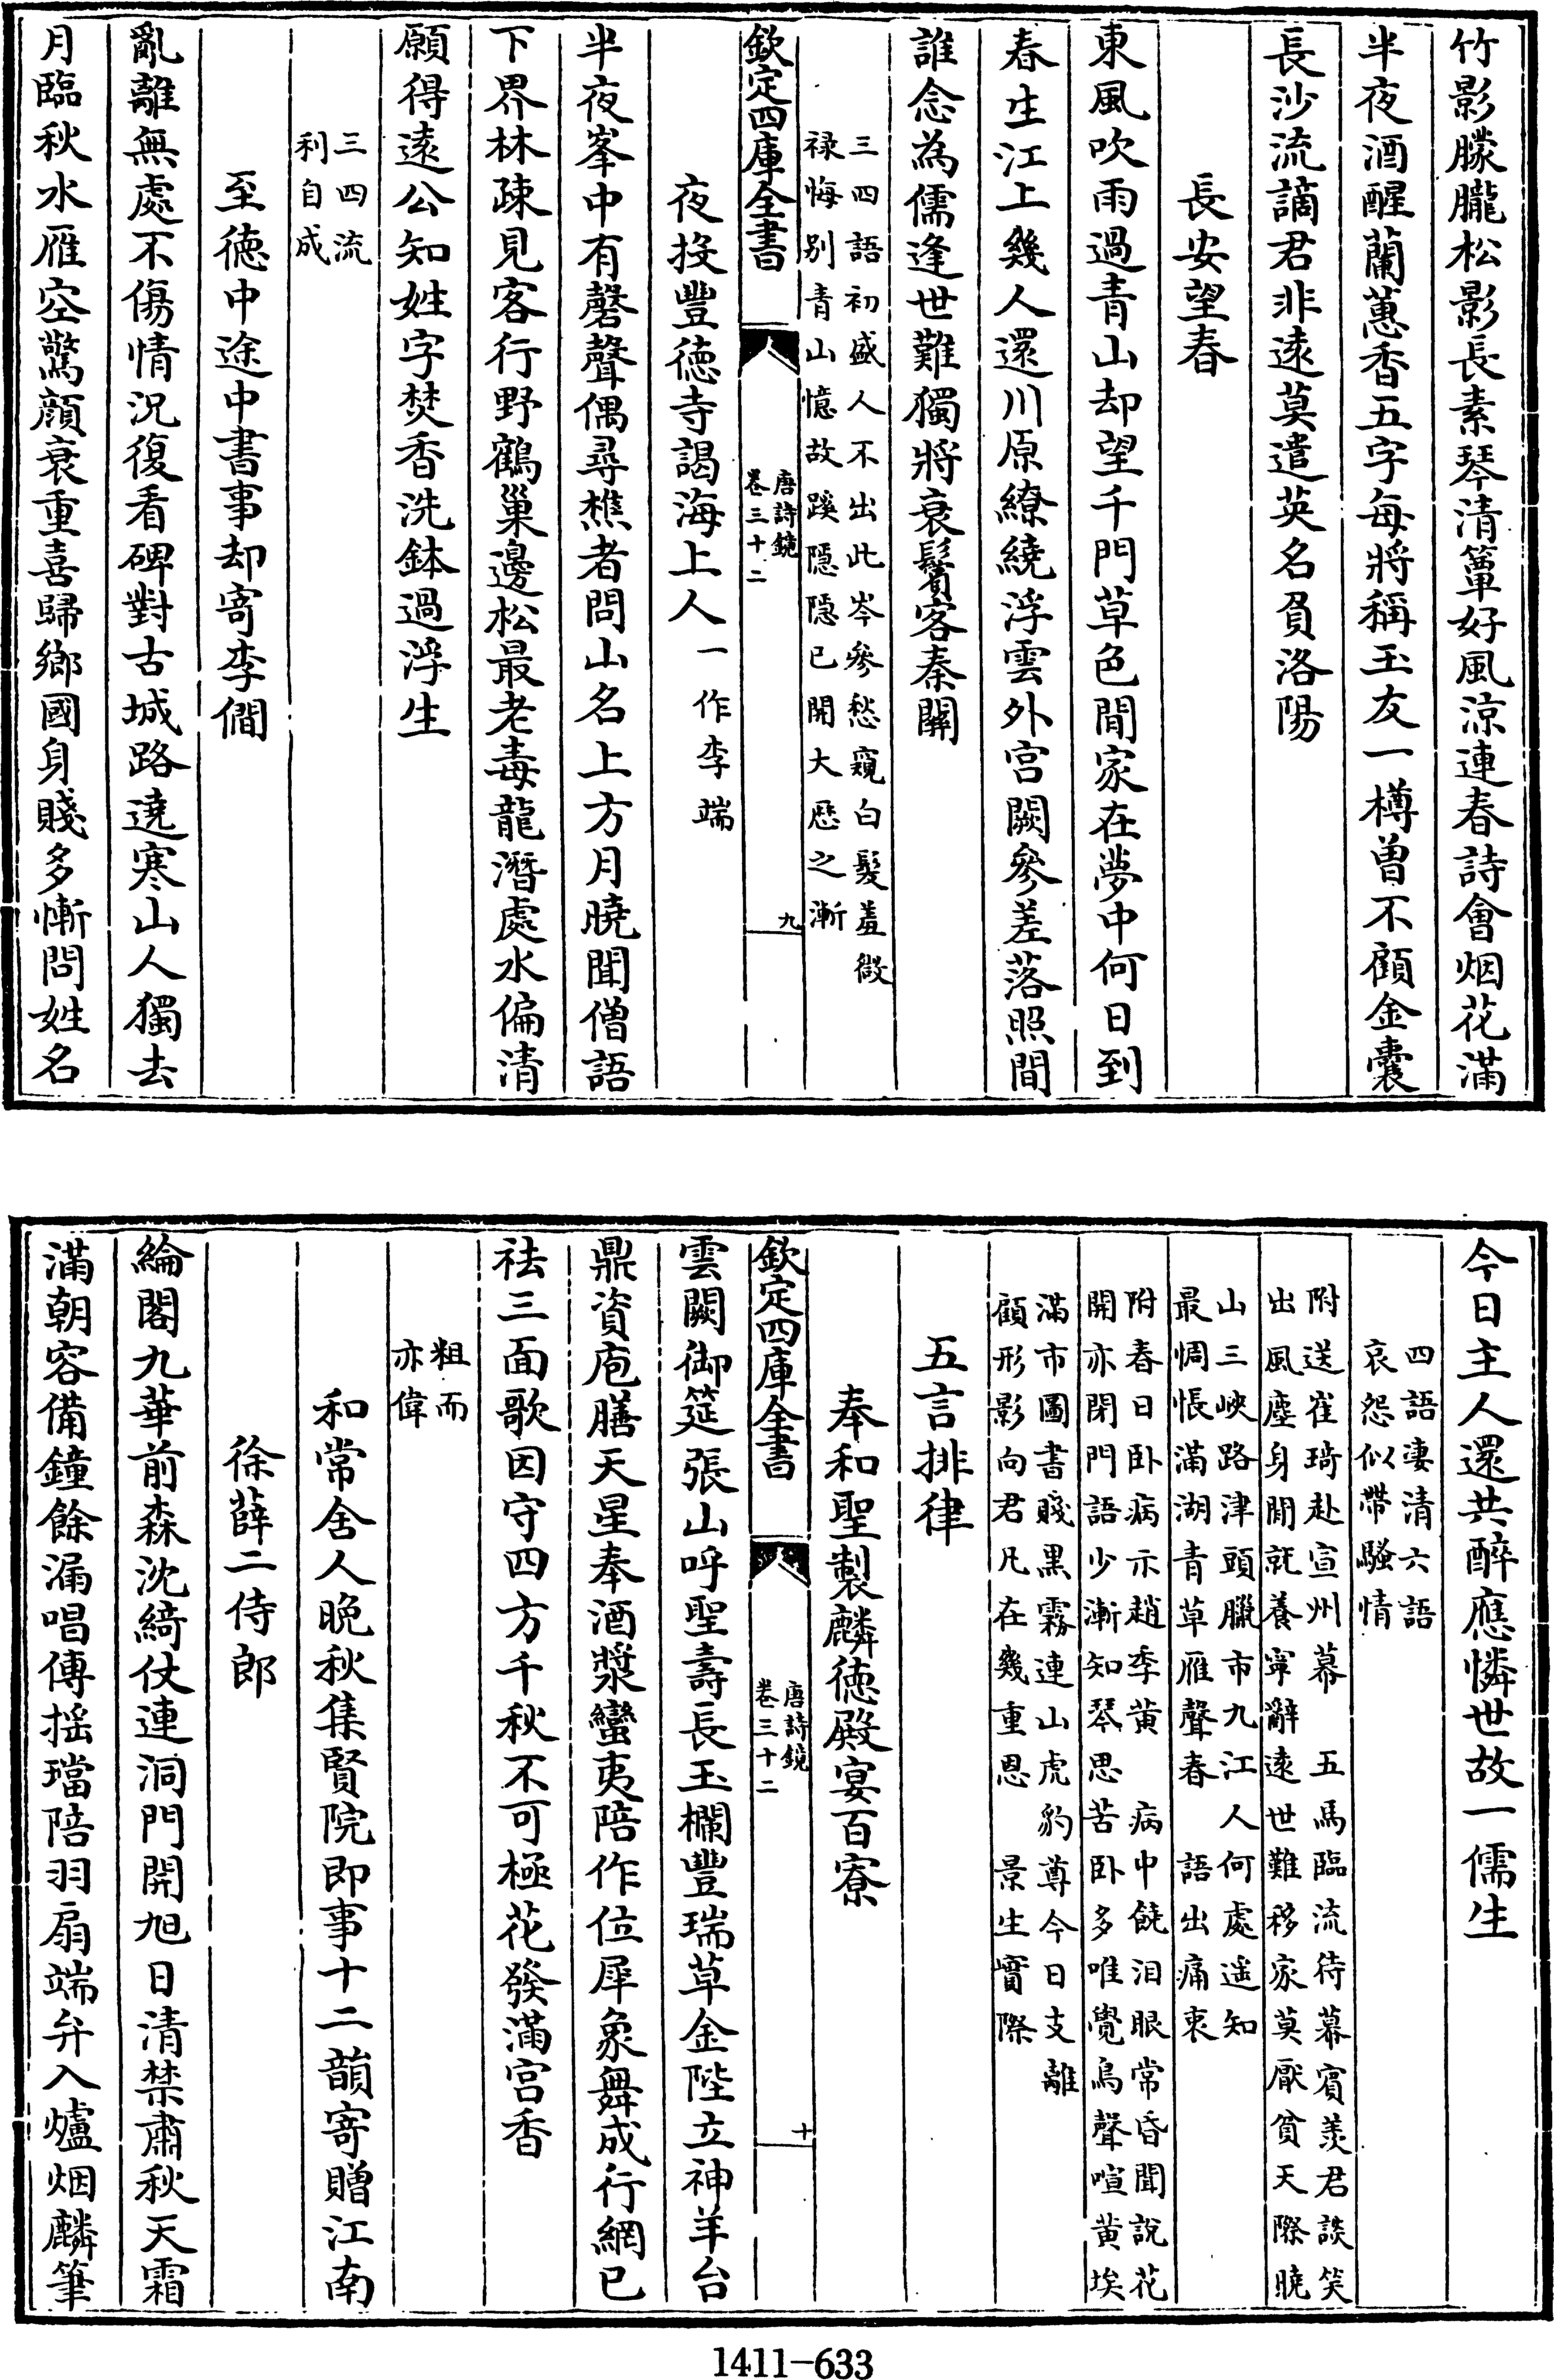 竹影朦朧松影長素琴清簟好風涼連春詩會烟花滿
半夜酒醒蘭蕙香五字每將稱玉友一樽曽不顧金囊
長沙流謫君非逺莫遣英名負洛陽
長安望春
東風吹雨過青山却望千門草色閒家在夢中何日到
春生江上幾人還川原繚繞浮雲外宮闕參差落照間
誰念為儒逢世難獨將衰鬢客秦關
三四語初盛人不出此岑參愁窺白髮羞微
祿悔別青山憶故蹊隠隠已開大厯之漸
欽定四庫全書
唐詩鏡
卷三十二
九
夜投豐徳寺謁海上人一作李端
半夜峯中有磬聲偶尋樵者問山名上方月曉聞僧語
下界林疎見客行野鶴巢邊松最老毒龍潛處水偏清
願得逺公知姓字焚香洗鉢過浮生
三四流
利自成
至徳中途中書事却寄李僩
亂離無處不傷情況復看碑對古城路遶寒山人獨去
月臨秋水雁空驚顔衰重喜歸鄉國身賤多慚問姓名
今日主人還共醉應憐世故一儒生
四語凄清六語
哀怨似帶騷情
附送崔琦赴宣州幕 五馬臨流待幕賓羡君談笑
出風塵身閒就養寧辭逺世難移家莫厭貧天際曉
山三峽路津頭臘市九江人何處遥知
最惆悵滿湖青草雁聲春 語出痛衷
附春日卧病示趙季黄 病中饒泪眼常昏聞說花
開亦閉門語少漸知琴思苦卧多唯覺鳥聲喧黄埃
滿市圖書賤黒霧連山虎豹尊今日支離
顧形影向君凡在幾重恩 景生實際
五言排律
奉和聖製麟徳殿宴百寮
欽定四庫全書
唐詩鏡
卷三十二
十
雲闕御筵張山呼聖壽長玉欄豐瑞草金陛立神羊台
鼎資庖膳天星奉酒漿蠻夷陪作位犀象舞成行網已
袪三面歌因守四方千秋不可極花發滿宮香
粗而
亦偉
和常舍人晚秋集賢院即事十二韻寄贈江南
徐薛二侍郎
綸閣九華前森沈綺仗連洞門開旭日清禁肅秋天霜
滿朝容備鐘餘漏唱傳揺璫陪羽扇端弁入爐烟麟筆
1411-633